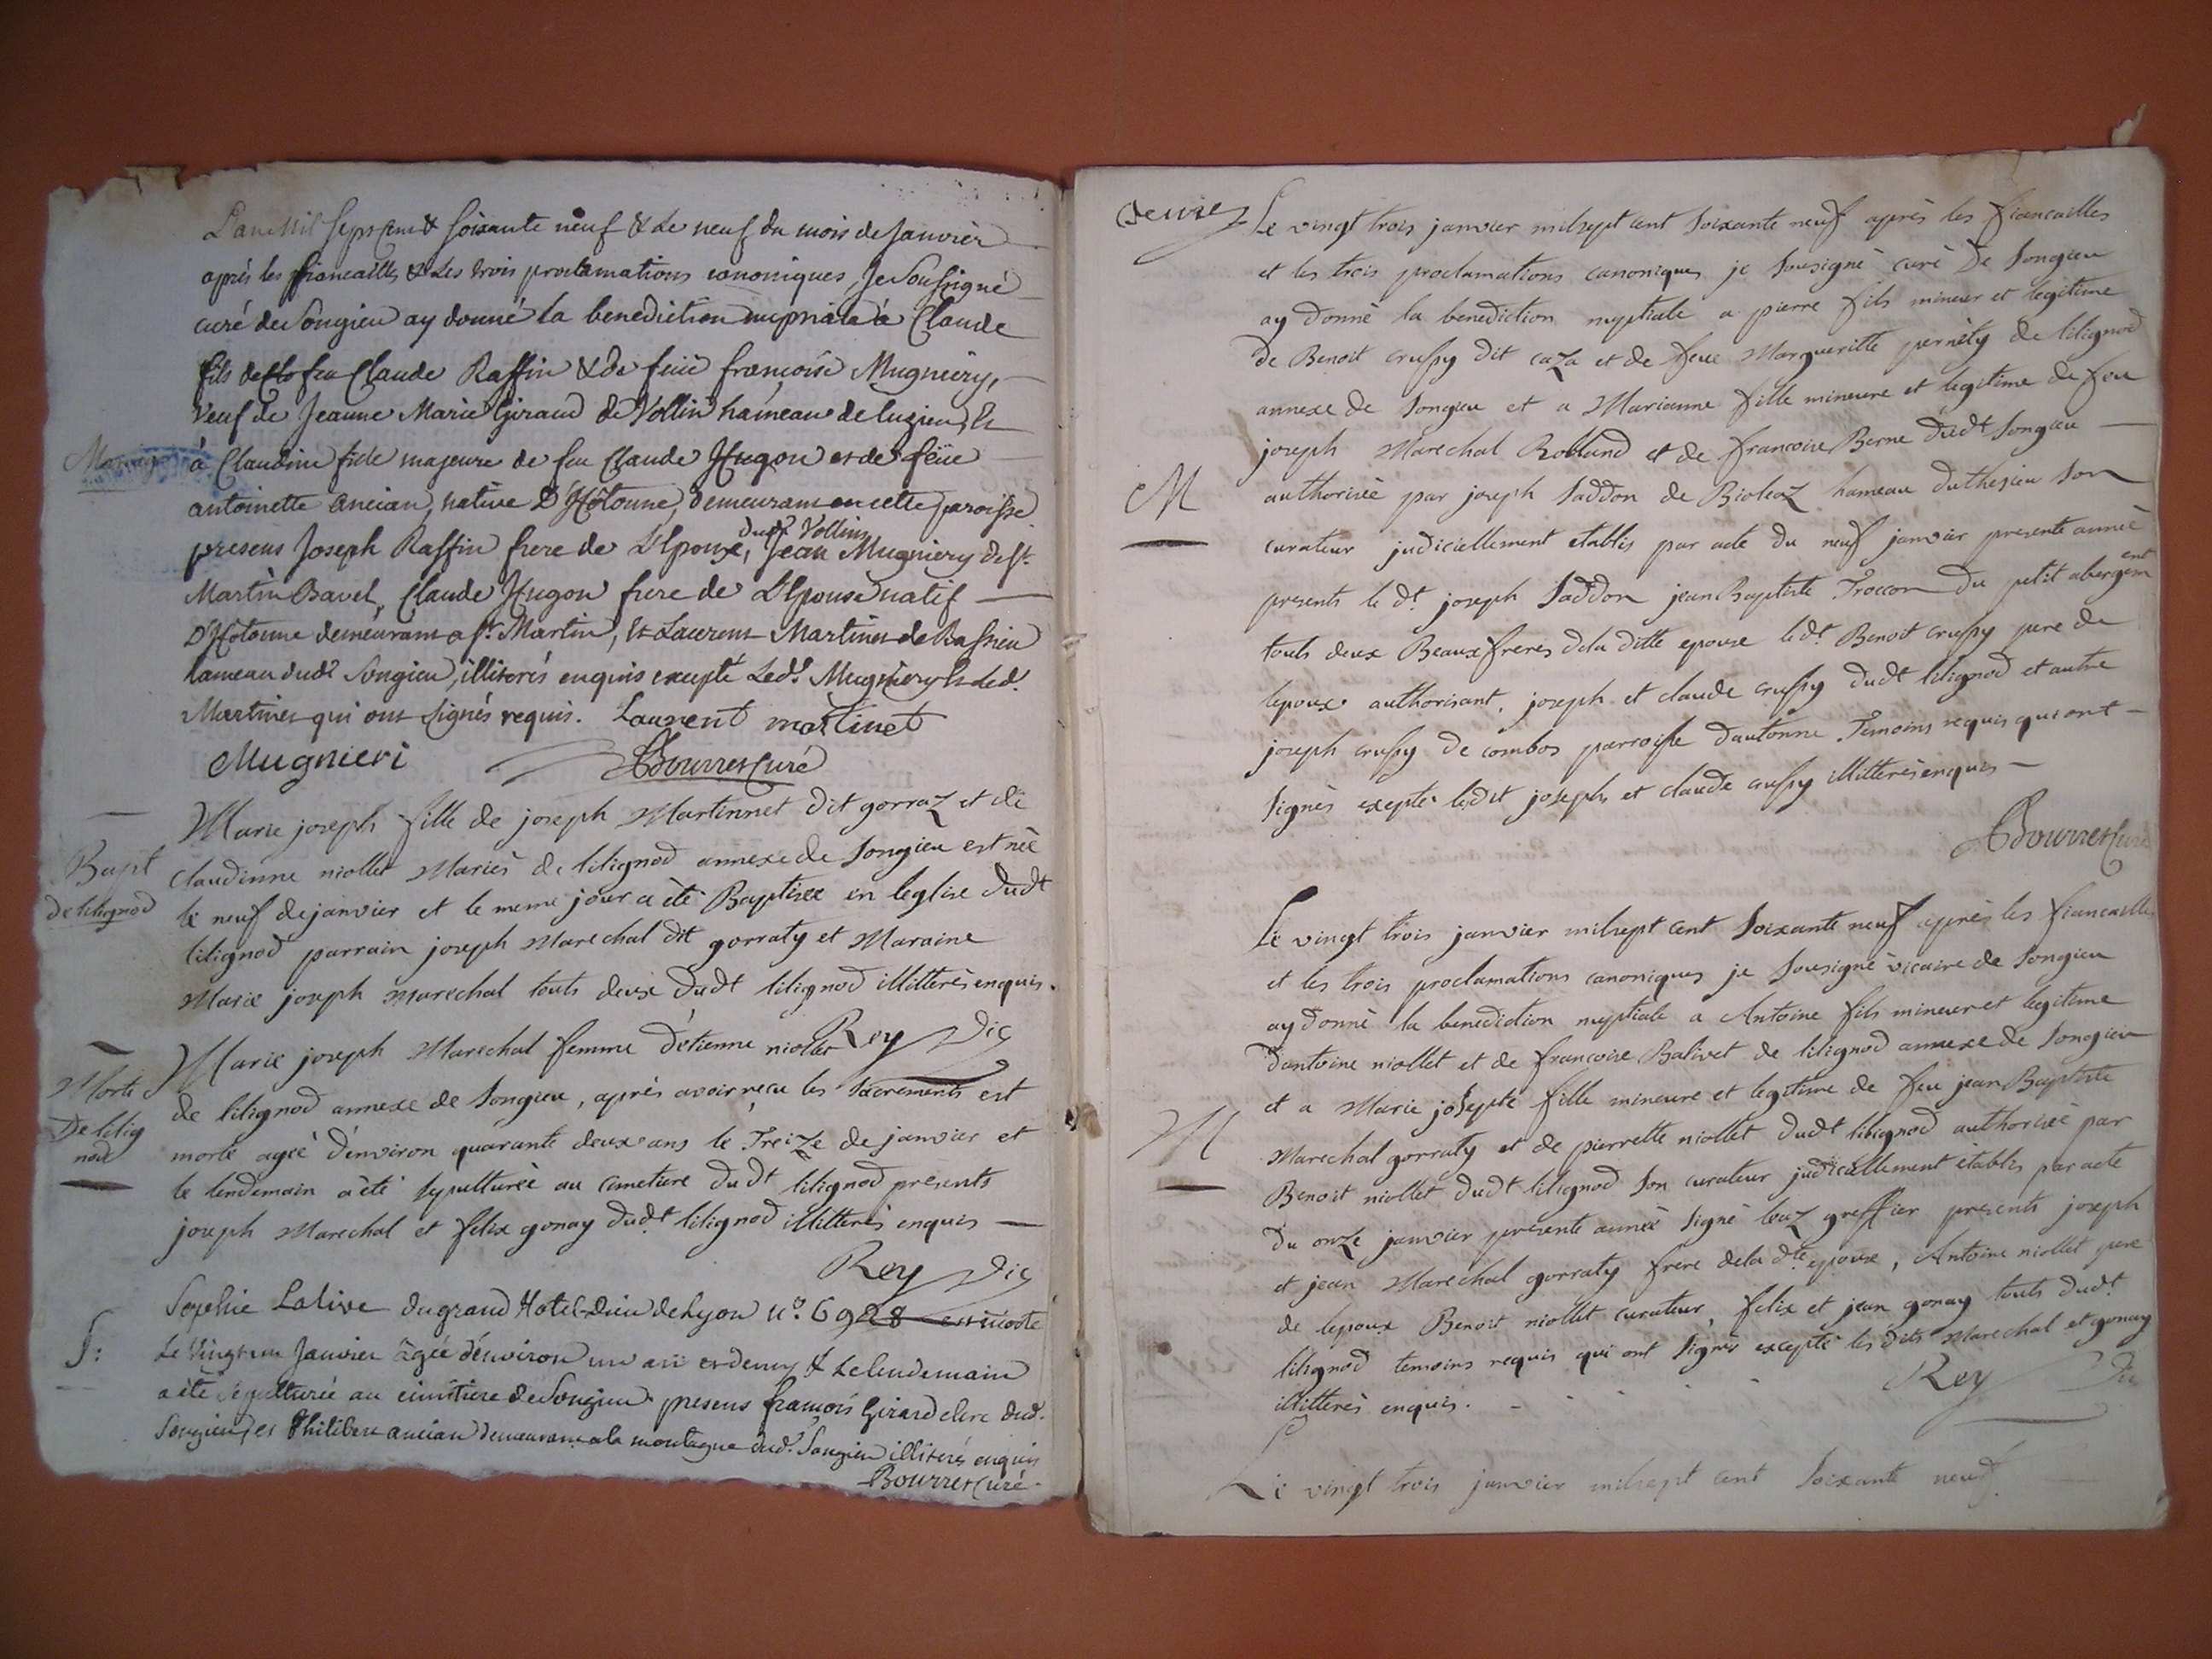 L'an Mil sept Cent & soixante neuf & Le neuf du mois de Janvier
aprés les fiancailles & Les trois proclamations canoniques, Je Soussigné
curé de Songieu ay donné la benediction nuptiale à Claude
fils de feu Claude Raffin & de feüe françoise Mugniery,
veuf de Jeanne Marie Giraud de Vollin hameau de luzieu, Et
Mariage
à Claudine fille majeure de feu Claude Hugon et de feüe
antoinette ancian, native D'Hotonne, demeurant en cette paroisse
presens Joseph Raffin frere de L'Epoux, dudt Vollin, Jean Mugniery de st.
Martin Bavel, Claude Hugon frere de L'Epouse natif
D'Hotonne demeurant a st. Martin, Et Laurent Martinet de Bassieu
hameau dudt Songieu, illiterés enquis excepté Ledt. Mugniery & led.
Martinet qui ont signés requis. Laurent martinet
Mugnieri Bourret Curé
Marie joseph fille de joseph Martinnet dit gorraz et de
Bapt
de lilignod
claudinne niollet Mariés de lilignod annexe de Songieu est née
le neuf de janvier et le meme jour a été Baptisée en leglise dudt
lilignod parrain joseph Marechal dit gorraty et Maraine
Marie joseph marechal touts deux dudt lilignod illitterés enquis.
Rey Vic
Marie joseph Marechal femme d'étienne niollet
Morte
De lilig
nod
de lilignod annexe de Songieu, aprés avoir reçu les Sacrements est
morte ageé d'environ quarante deux ans le Treize de janvier et
le lendemain a été sepulturée au cimetiere dudt lilignod presents
joseph Marechal et felix gonay dudt lilignod illitterés enquis
Rey Vic
Sophie Lalive du grand Hotel-Dieu de Lyon no. 6928 est morte
S:
Le Vingt un Janvier âgée d'environ un an et demy & Le lendemain
a été sepulturée au cimitiere de Songieu presens françois Girard clerc dud.
Songieu, et Philibert ancian demeurant a la montagne dud. Songieu illiterés enquis
Bourret Curé
deuxe
Le vingt trois janvier milsept cent soixante neuf aprés les fiancailles
et les trois proclamations canoniques je Sousigné curé De Songieu
ay donné la benediction nuptiale a pierre fils mineur et legitime
de Benoit crussy dit caza et de feue Margueritte pernety de lilignod
annexe de Songieu et a Marianne fille mineure et legitime de feu
joseph Marechal Rolland et de francoise Berne dudt Songieu
M
authorisée par joseph Saddon de Bioleaz hameau duthesieu son
curateur judiciellement etablis par acte du neuf janvier presente année
presents le dt. joseph Saddon jean Baptiste Troccon du petit abergement
touts deux Beaux freres de la ditte epouse le dt. Benoit crussy pere de
lepoux authorisant, joseph et claude crussy dudt lilignod et autre
joseph crussy de combos parroisse dautonne Temoins requis qui ont
signés exepté lesdit joseph et claude crussy illitterés enquis
Bourret Curé
Le vingt trois janvier milsept cent soixante neuf aprés les fiancailles
et les trois proclamations canoniques je Sousigné vicaire de Songieu
ay donné la benediction nuptiale a Antoine fils mineur et legitime
d'antoine niollet et de francoise Balivet de lilignod annexe de Songieu
et a Marie josepte fille mineure et legitime de feu jean Baptiste
M
Marechal gorraty et de pierrette niollet dudt lilignod authorisée par
Benoit niollet dudt lilignod Son curateur judiciellement établis par acte
du onze janvier presente année signé leuz greffier presents joseph
et jean Marechal gorraty frere de la dte. epouse, Antoine niollet pere
de lepoux Benoit niollet curateur, felix et jean gonay touts dudt.
lilignod temoins requis qui ont signés excepté les dits Marechal et gonay
illitterés enquis.
Rey Vic
Le vingt trois janvier milsept cent soixante neuf